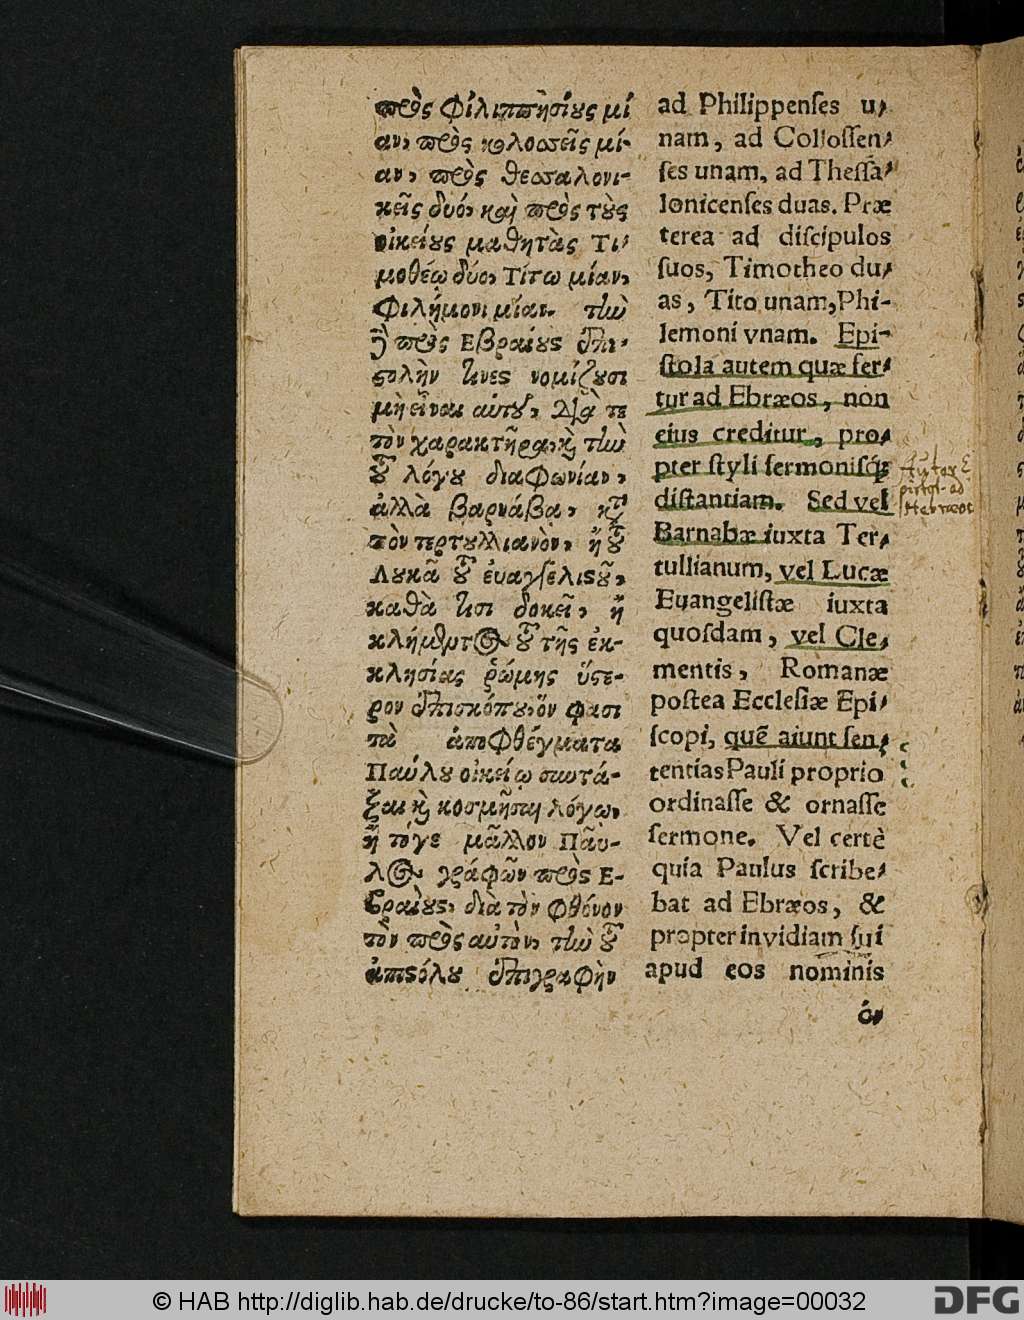 πρὸς Φιλιππησίους μί
αν, πρὸς κολοσσεῖς μί-
αν, πρὸς θεσσαλονι-
κεῖς δυό, καὶ πρὸς τοὺς
οἰκείους μαθητὰς Τι-
μοθέῳ δύο, Τίτῳ μίαν,
Φιλήμονι μίαν. τὴν
δὲ πρὸς Εβραίους ἐπι-
στολὴν τινες νομίζουσι
μὴ εἶναι αὐτοῦ, διὰ τε
τὸν χαρακτῆρα, καὶ τὴν
τοῦ λόγου διαφωνίαν,
ἀλλὰ βαρνάβα, κατὰ
τὸν τερτυλλιανὸν, ἢ τοῦ
Λουκᾶ τοῦ ἐυαγγελιστοῦ,
καθὰ τισι δοκεῖ, ἢ
κλήμεντος τοῦ τῆς ἐκ-
κλησίας ῥώμης ὕστε-
ρον ἐπισκόπου, ὅν φασι
τὰ ἀποφθέγματα
Παύλου οἰκείῳ συντά-
ξαι καὶ κοσμῆσαι λόγῳ,
ἢ τόγε μᾶλλον Παῦ-
λος γράφων πρὸς Ε-
βραίους, διὰ τὸν φθόνον
τὸν πρὸς αὐτὸν, τὴν τοῦ
ἀποστόλου ἐπιγραφὴν
ad Philippenses u-
nam, ad Collossen-
ses unam, ad Thessa-
lonicenses duas. Præ
terea ad discipulos
suos, Timotheo du-
as, Tito unam, Phi-
lemoni vnam. Epi-
stola autem quæ fer-
tur ad Ebræos, non
eius creditur, pro-
pter styli sermonisq́;
distantiam. Sed vel
Barnabæ iuxta Ter-
tullianum, vel Lucæ
Euangelistæ iuxta
quosdam, vel Cle-
mentis, Romanæ
postea Ecclesiæ Epi-
scopi, quẽ aiunt sen-
tentias Pauli proprio
ordinasse & ornasse
sermone. Vel certè
quia Paulus scribe-
bat ad Ebræos, &
propter invidiam sui
apud eos nominis
ὁν
ad
Hebræos
© HAB http://diglib.hab.de/drucke/to-86/start.htm?image=00032
DFG